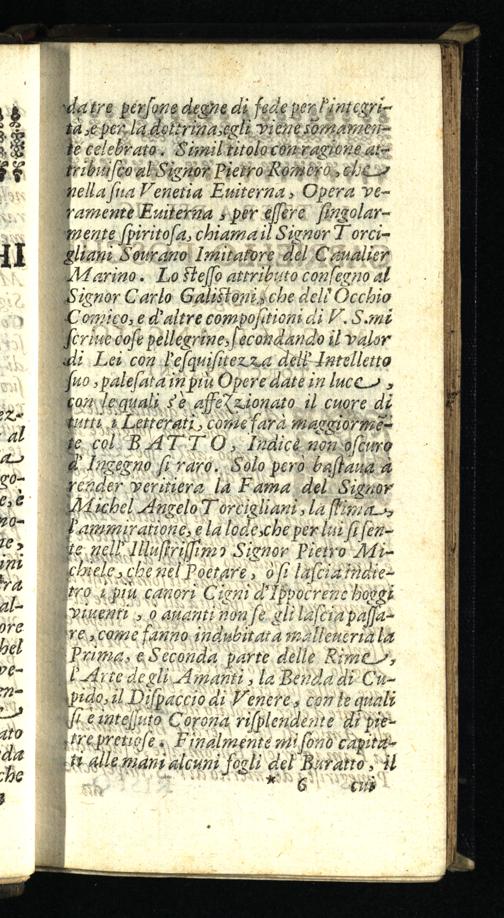 da tre persone degne di fede per l'integri-
tà, e per la dottrina, egli viene somamen-
te celebrato. Simil titolo con ragione at-
tribuisco al Signor Pietro Romero, che
nella sua Venetia Euiterna, Opera ve-
ramente Euiterna, per essere singolar-
mente spiritosa, chiama il Signor Torci-
gliani Sourano Imitatore del Caualier
Marino. Lo stesso attributo consegno al
Signor Carlo Galistoni, che dell'Occhio
Comico, e d'altre compositioni di V. S. mi
scriue cose pellegrine, secondando il valor
di Lei con l'esquisitezza dell'Intelletto
suo, palesata in più Opere date in luce,
con le quali s'è affezzionato il cuore di
tutti i Letterati, come farà maggiormē-
te col BATTO, Indice non oscuro
d'Ingegno sì raro. Solo però bastaua à
render veritiera la Fama del Signor
Michel Angelo Torcigliani, la stima,
l'ammiratione, e la lode, che per lui si sen-
te nell'Illustrissimo Signor Pietro Mi-
chiele, che nel Poetare, ò si lascia indie-
tro i più canori Cigni d'Ippocrene hoggi
viuenti, o auanti non se gli lascia passa-
re, come fanno indubitata malleueria la
Prima, e Seconda parte delle Rime,
l'Arte degli Amanti, la Benda di Cu-
pido, il Dispaccio di Venere, con le quali
si è intessuto Corona risplendente di pie-
tre pretiose. Finalmente mi sono capita-
ti alle mani alcuni fogli del Buratto, il
* 6 cui
IH
ez-
al
a
go-
e, è
no-
ne,
ini
tra
al-
ore
hel
ve-
en-
ato
da
che